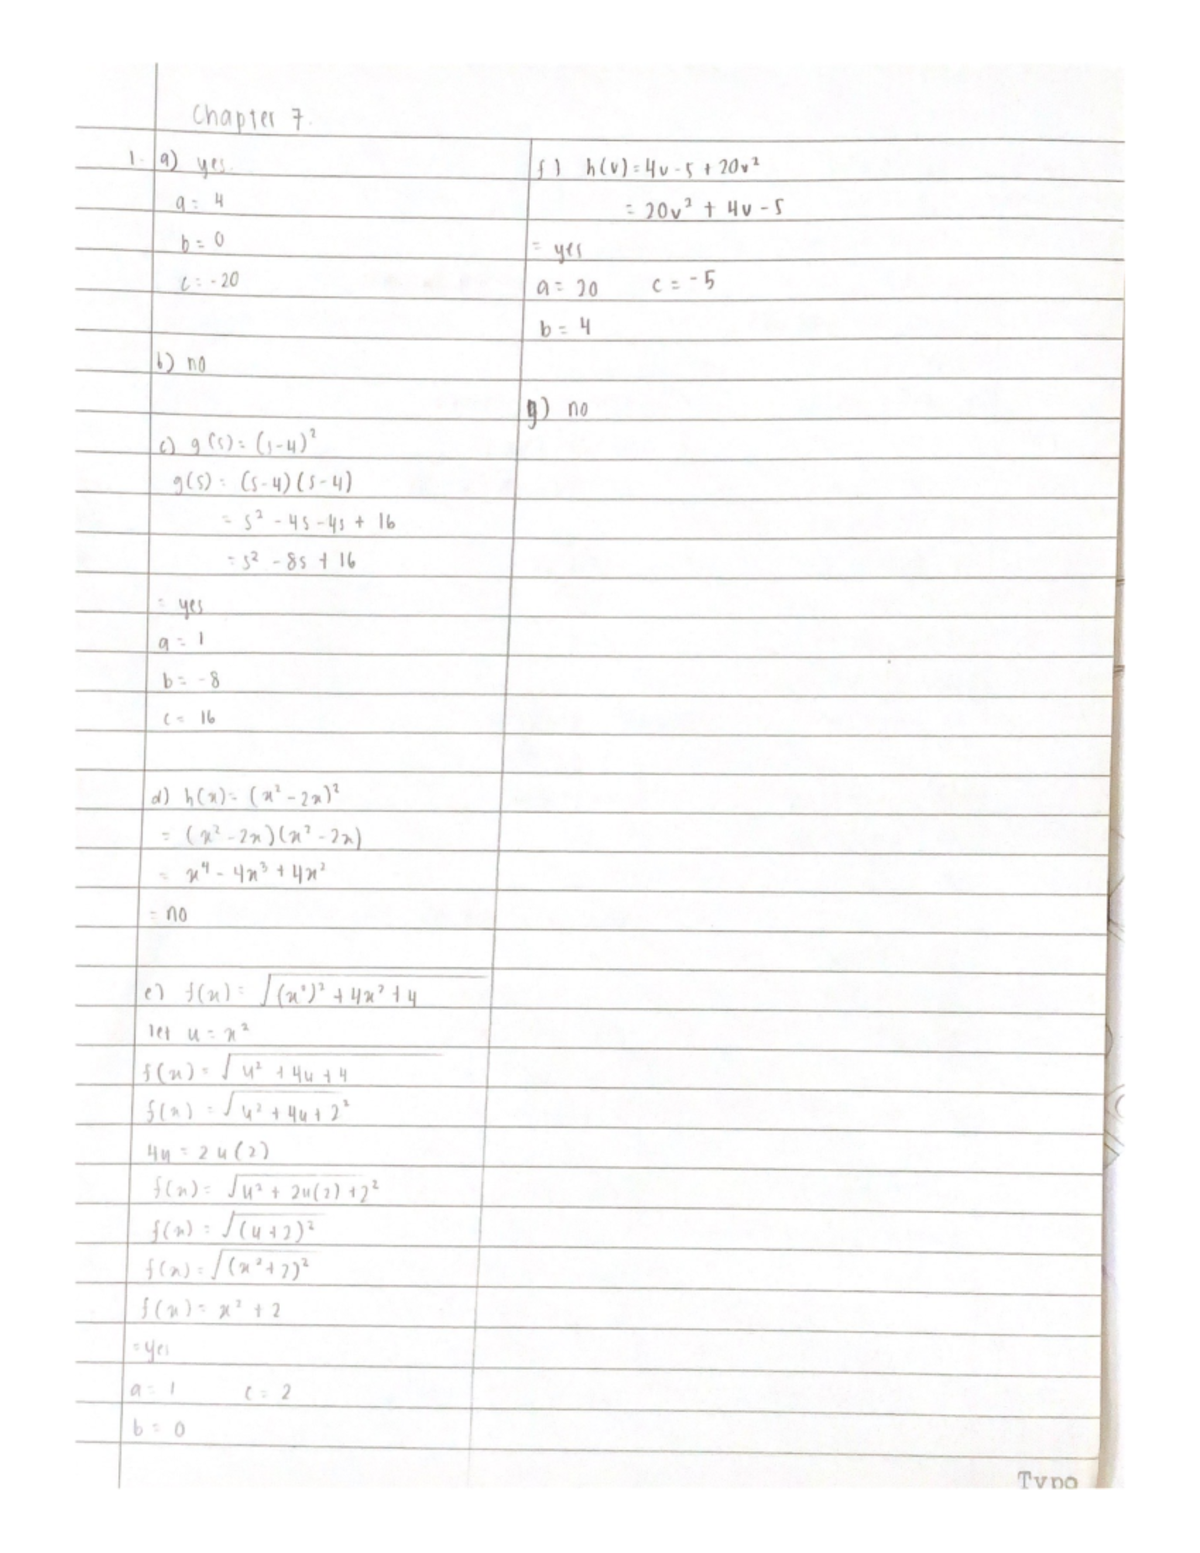 Chapter 7.
1. a) yes.
a = 4
b = 0
c = -20
b) no
c) g(s) = (s-4)²
g(s) = (s-4)(s-4)
= s² - 4s - 4s + 16
= s² - 8s + 16
= yes
a = 1
b = -8
c = 16
d) h(x) = (x² - 2x)²
= (x² - 2x)(x² - 2x)
= x⁴ - 4x³ + 4x²
= no
e) f(x) = √(x²)² + 4x² + 4
let u = x²
f(x) = √u² + 4u + 4
f(x) = √u² + 4u + 2²
4u = 2u(2)
f(x) = √u² + 2u(2) + 2²
f(x) = √(u+2)²
f(x) = √(x²+2)²
f(x) = x² + 2
= yes
a = 1 c = 2
b = 0
f) h(v) = 4v - 5 + 20v²
= 20v² + 4v - 5
= yes
a = 20 c = -5
b = 4
g) no
Typo